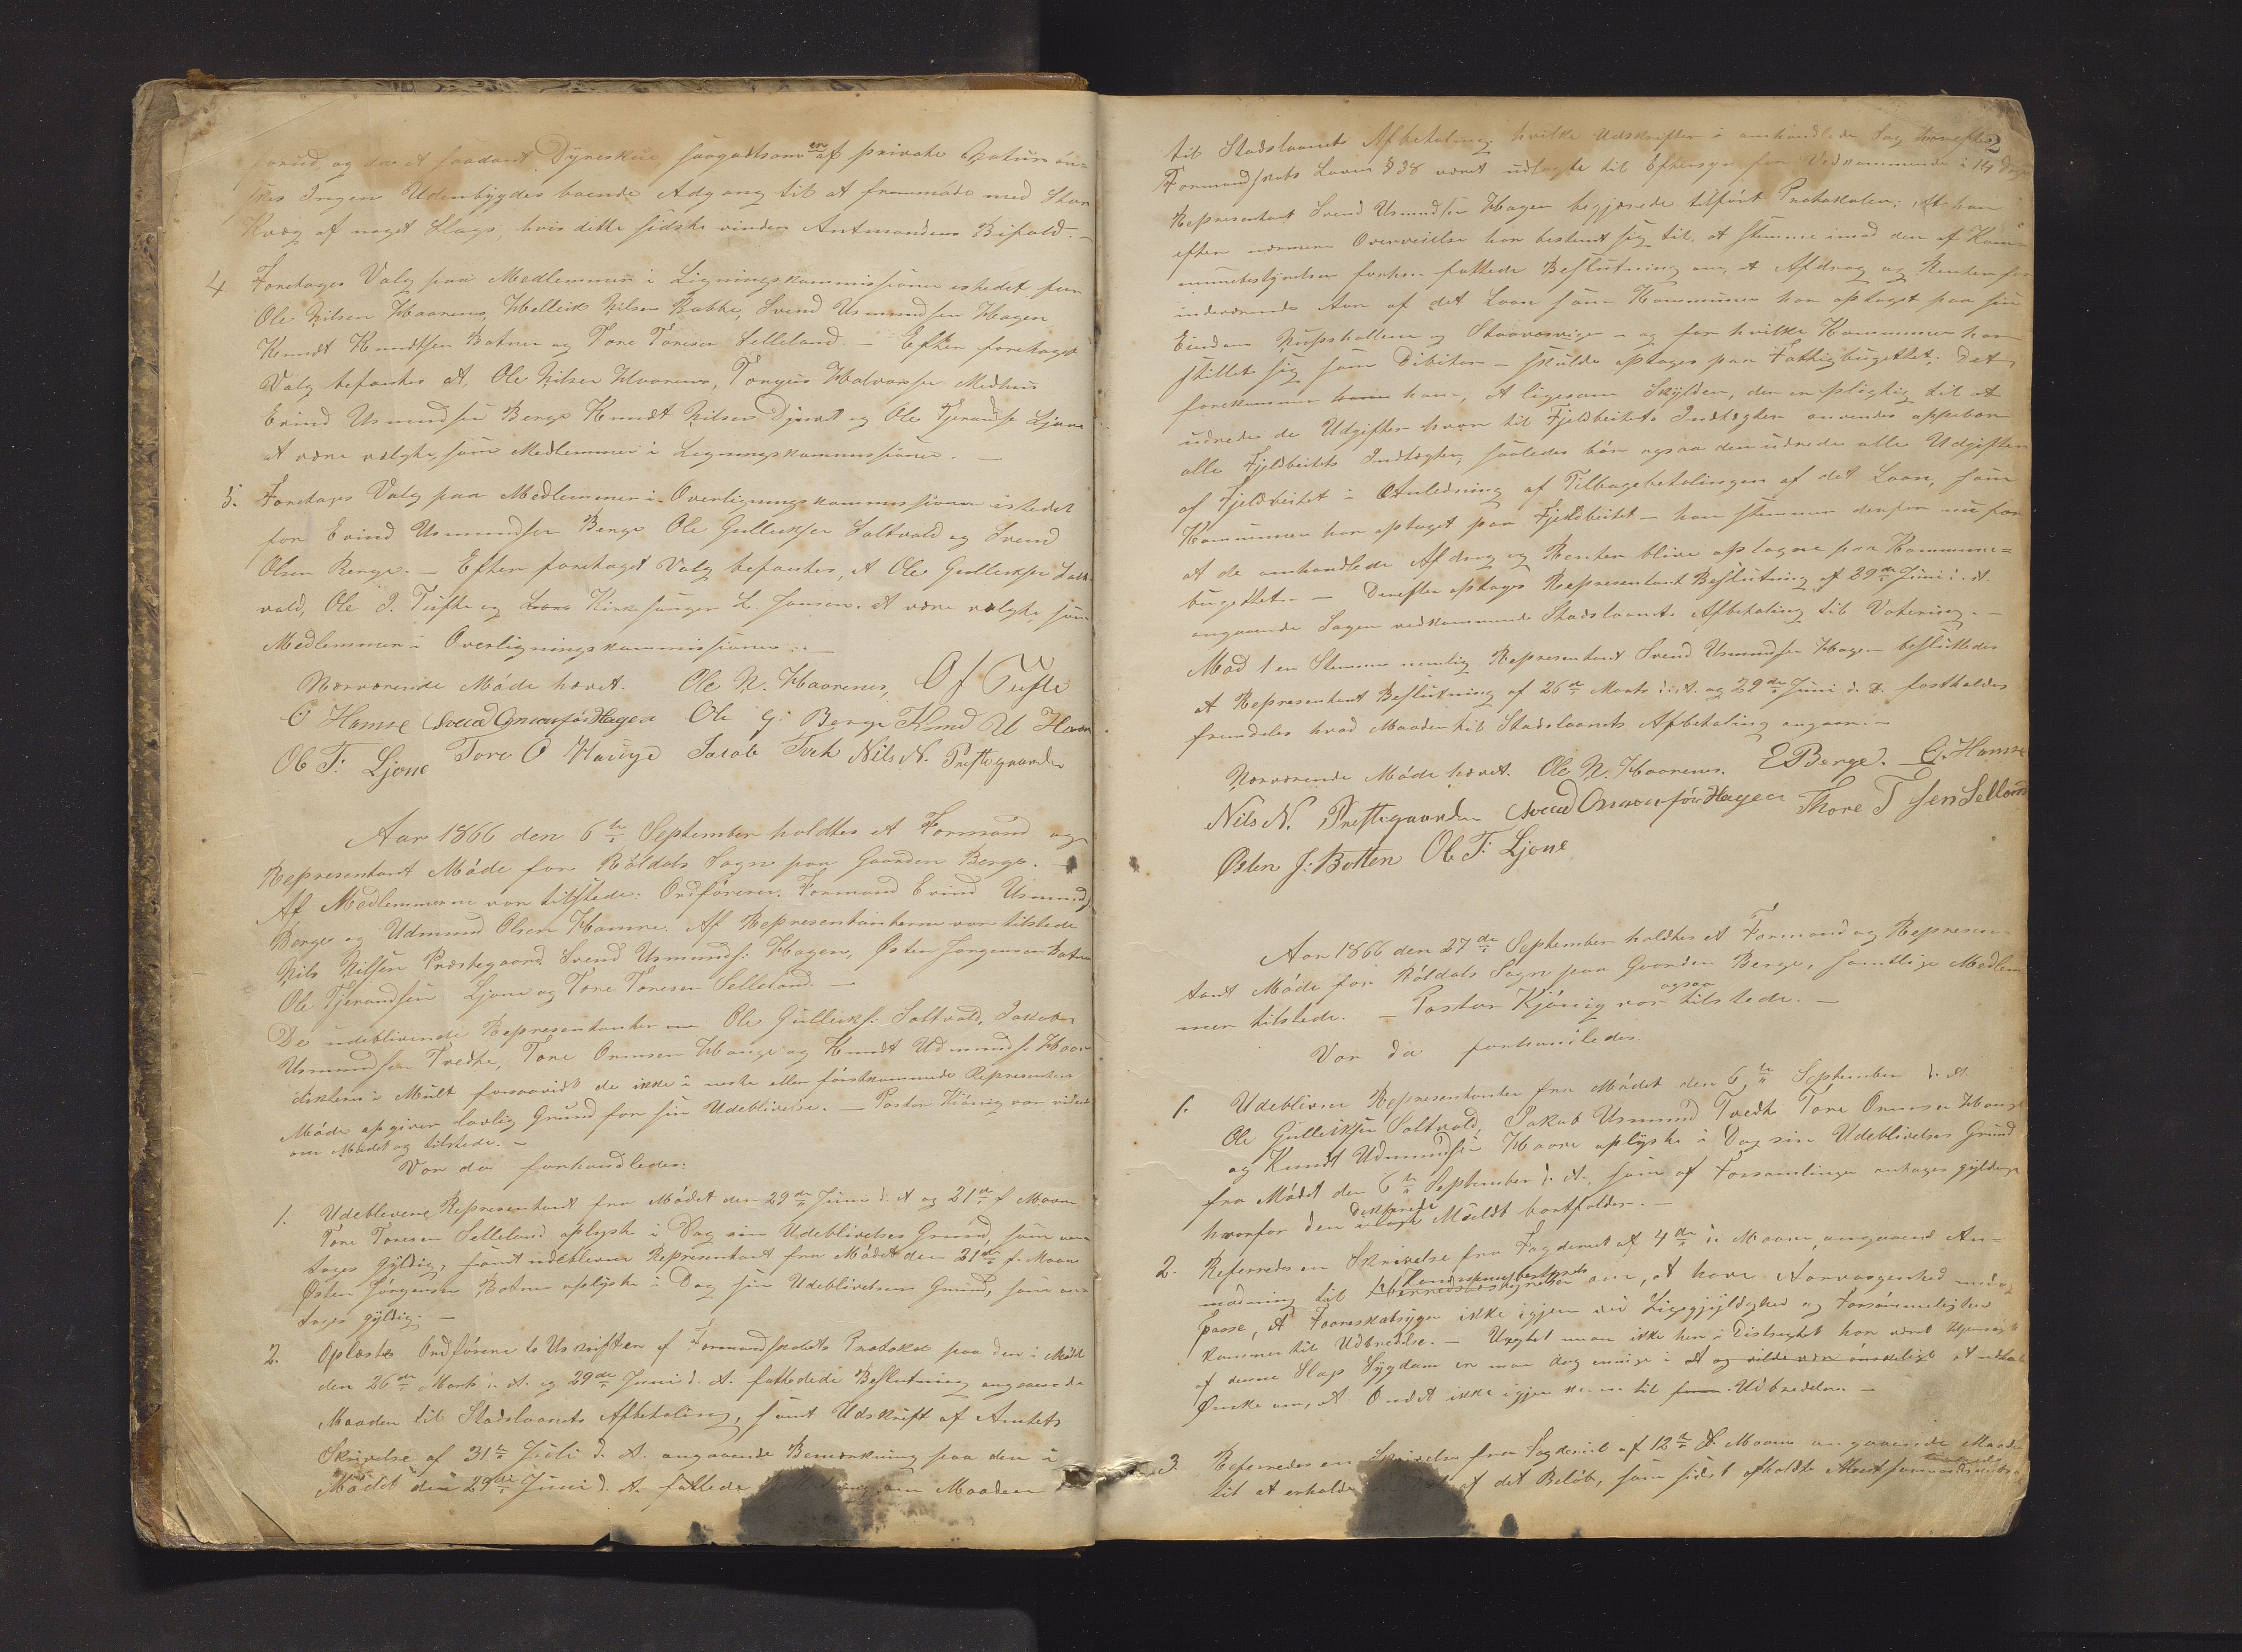 forud, og da et saadant Dyreskue, saagodtsom en af privat Natur, øn-
skes Ingen Udenbygdes boende Adgang til at fremmøde med Stor
Kvæg af noget Slags, hvis dette sidste vinder Amtmandens Bifald. –
4. Foretages Valg paa Medlemmer i Ligningskommissionen istedet for
Ole Nilsen Haarenes, Helleik Nilsen Rabbe, Svend Usmundsen Hagen
Knudt Knudtsen Botnen og Tore Toresen Selleland. – Efter foretaget
Valg befantes at, Ole Nilsen Haarenes, Torgius Halvorsen Medhus
Erind Usmundsen Berge Knudt Nilsen og Ole Tjerandse Ljone
at være valgte, som Medlemmer i Ligningskommissionen. –
5. Foretages Valg paa Medlemmer i Overligningskommissionen istedet
for Erind Usmundsen Berge Ole Gulleiksen Saltvold og Svend
Olsen Berge. – Efter foretaget Valg befantes, at Ole Gulleiksen Salt-
vold, Ole J. Tufte og Kirkesanger L. Jansen. at være valgte, som
Medlemmer i Overligningskommissionen. –
Nærværende Møde hævet. Ole N. Haarenes, O J Tufte
O Hamre Svend Osmonsøn Hagen Ole G: Berge Knud U Haare
Ole T: Ljone Tore O Hauge Jacob Tveh Nils N. Prestegaarden
Aar 1866 den 6te September holdtes et Formand og
Representant Møde for Røldals Sogn paa Gaarden Berge. –
Af Medlemmerne var tilstede: Ordføreren, Formand Erind Usmunds
Berge og Udmund Olsen Hamre. Af Representanterne var tilstede
Nils Nilsen Præstegaard, Svend Usmunds: Hagen, Østen Jørgensen Botnen
Ole Tjerandsen Ljone og Tore Toresen Selleland. –
De udeblivende Representanter Ole Gulleiks: Saltvold, Jakob
Usmundsen Tredte, Tore Ormsen Hauge og Knudt Udmunds: Haare
dikteres Mult forsaavidt de ikke i neste eller førstkommende Representant
Møde opgiver lovlig Grund for sin Udeblivelse. – Pastor Kjönig var vidende
om Mødet og tilstede. –
Var da forhandledes:
1. Udeblevene Representant fra Mødet den 29de Juni d. A og 21de f. Maan
Tore Toresen Selleland oplyste i Dag sin Udeblivelses Grund, som an-
tages gyldig, samt udeblevne Representant fra Mødet den 21de f. Maan
Østen Jørgensen Botnen oplyste i Dag sin Udeblivelses Grund, som an-
tages gyldig. –
2. Oplæstes Ordføreren to Udskrifter af Formandskabets Protokol paa den i Mødet
den 26de Marts d. A. og 29de Juni d. A. fattedede Beslutning angaaende
Maaden til Stadslaanets Afbetaling, samt Udskrift af Amtets
Skrivelse af 31te Juli d. A. angaaende Bemærkning paa den i
Mødet den 29de Juni d. A. fattede om Maaden
2
til Stadslaanets Afbetaling, hvilke Udskrifter i omhandlede Sag
Formandskabs Loven § 38 været udlagte til Eftersyn for Vedkommende i 14 Dage
Representant Svend Usmundsen Hagen begjærede tilført Protokolen: At han
efter nærmere Overveielse har bestemt sig til at stemme imod den af Kom-
munebestyrelsen forhen fattede Beslutning om, at Afdrag og Renter for
indeværende Aar af det Laan som Kommunen har optaget paa sin
Eiendom og – og for hvilke Kommunen har
stillet sig som Debitor – skulde optages paa Fattigbugettet; det
forekommer ham, at ligesom Skylden, den er pligtig til at
udrede de Udgifter hvor til Fjeldbeitets Indtægter anvendes oppebær
alle Fjeldbeitets Indtægter, saaledes bør ogsaa den udrede alle Udgifter
af Fjeldbeitet i Anledning af Tilbagebetalingen af det Laan, som
Kommunen har optaget paa Fjeldbeitet – han stemmer derfor nu for
at de omhandlede Afdrag og Renter blive optagne paa Kommune-
bugettet. – Derefter optages Representant Beslutning af 29de Juni d. A.
angaaende Sagen vedkommende Stadslaanets Afbetaling til Votering. –
Mod 1en Stemme nemlig Representant Svend Usmundsen Hagen besluttedes
at Representant Beslutning af 26de Marts d. A. og 29de Juni d. A. fastholdes
fremdeles hvad Maaden til Stadslaanets Afbetaling angaar. –
Nærværende Møde hævet. Ole N. Haarenes. E Berge. O. Hamre
Nils N. Prestegaarden Svend Osmonsøn Hagen Thore T sen Selland
Østen J: Botten Ole T: Ljone
Aar 1866 den 27de September holdtes et Formand og Represen-
tant Møde for Røldals Sogn paa Gaarden Berge, samtlige Medlem-
mer tilstede. – Pastor Kjönig var ogsaa tilstede. –
Var da forhandledes
1. Udeblevne Representanter fra Mødet den 6te September d. A.
Ole Gulleiksen Saltvold, Jakob Usmund Tredte Tore Ormsen Hauge
og Knudt Udmundsen Haare oplyste i Dag sin Udeblivelses Grund
fra Mødet den 6te September d. A., som af Forsamlingen antages gyldige
hvorfor den dikterede Muldt bortfalder. –
2. Referredes en Skrivelse fra Fogderiet af 4de i Maaned, angaaende An-
modning til om, at have Aarvaagenhed
paase, at Faareskabsygen ikke igjen ved Ligegyldighed og Forsømmelighed
kommer til Udbredelse. – Uagtet man ikke her i Distriktet har været
af denne Slags Sygdom er man dog enige i at
Ønske om, at Ondet ikke igjen kommer til Udbredelse. –
3. Referredes en Skrivelse fra Fogderiet af 12te d. Maaned angaaende Maaden
til at erholde af det Beløb, som sidst afholdte